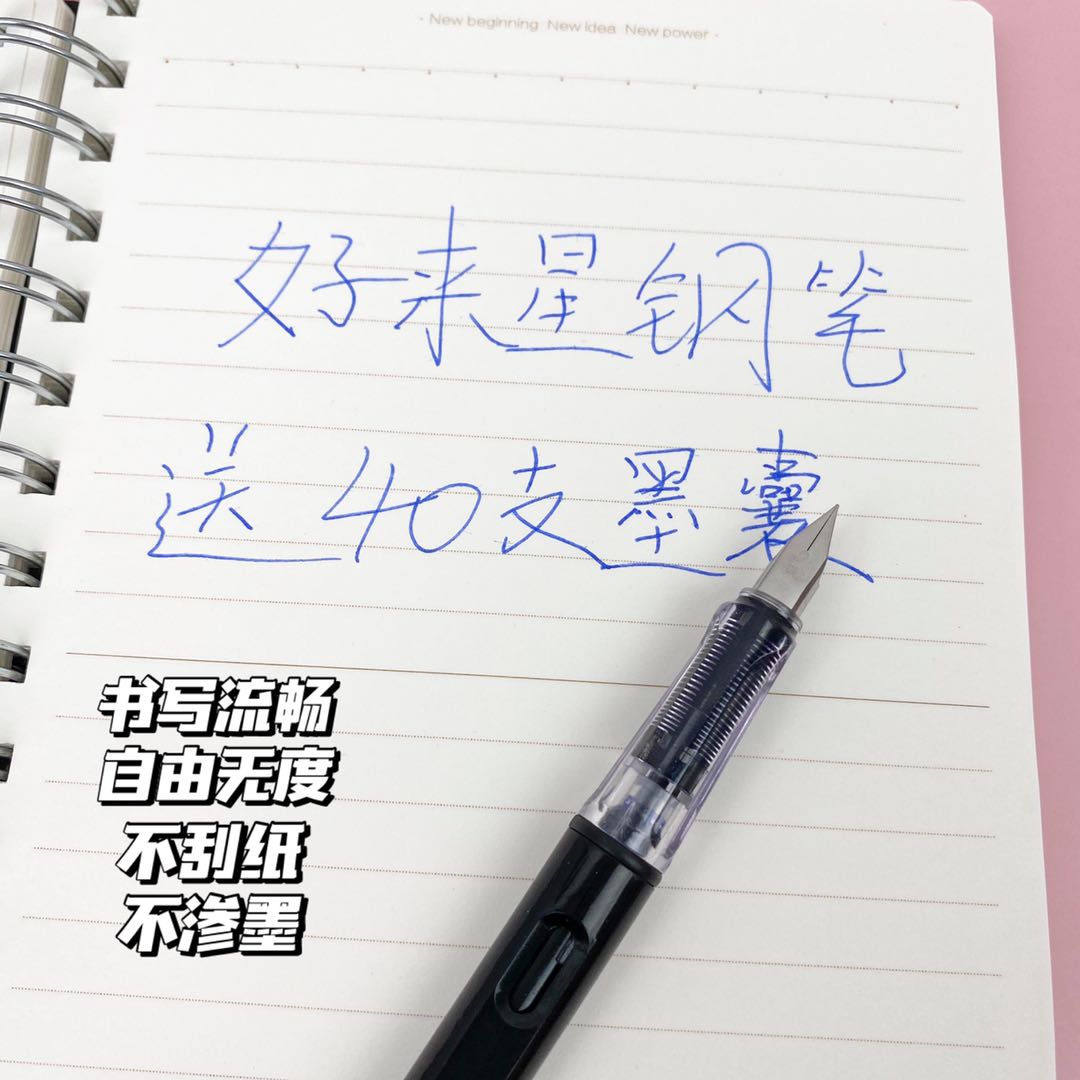 · New beginning New idea New power ·
好来星钢笔
送40支墨囊
书写流畅
自由无度
不刮纸
不渗墨